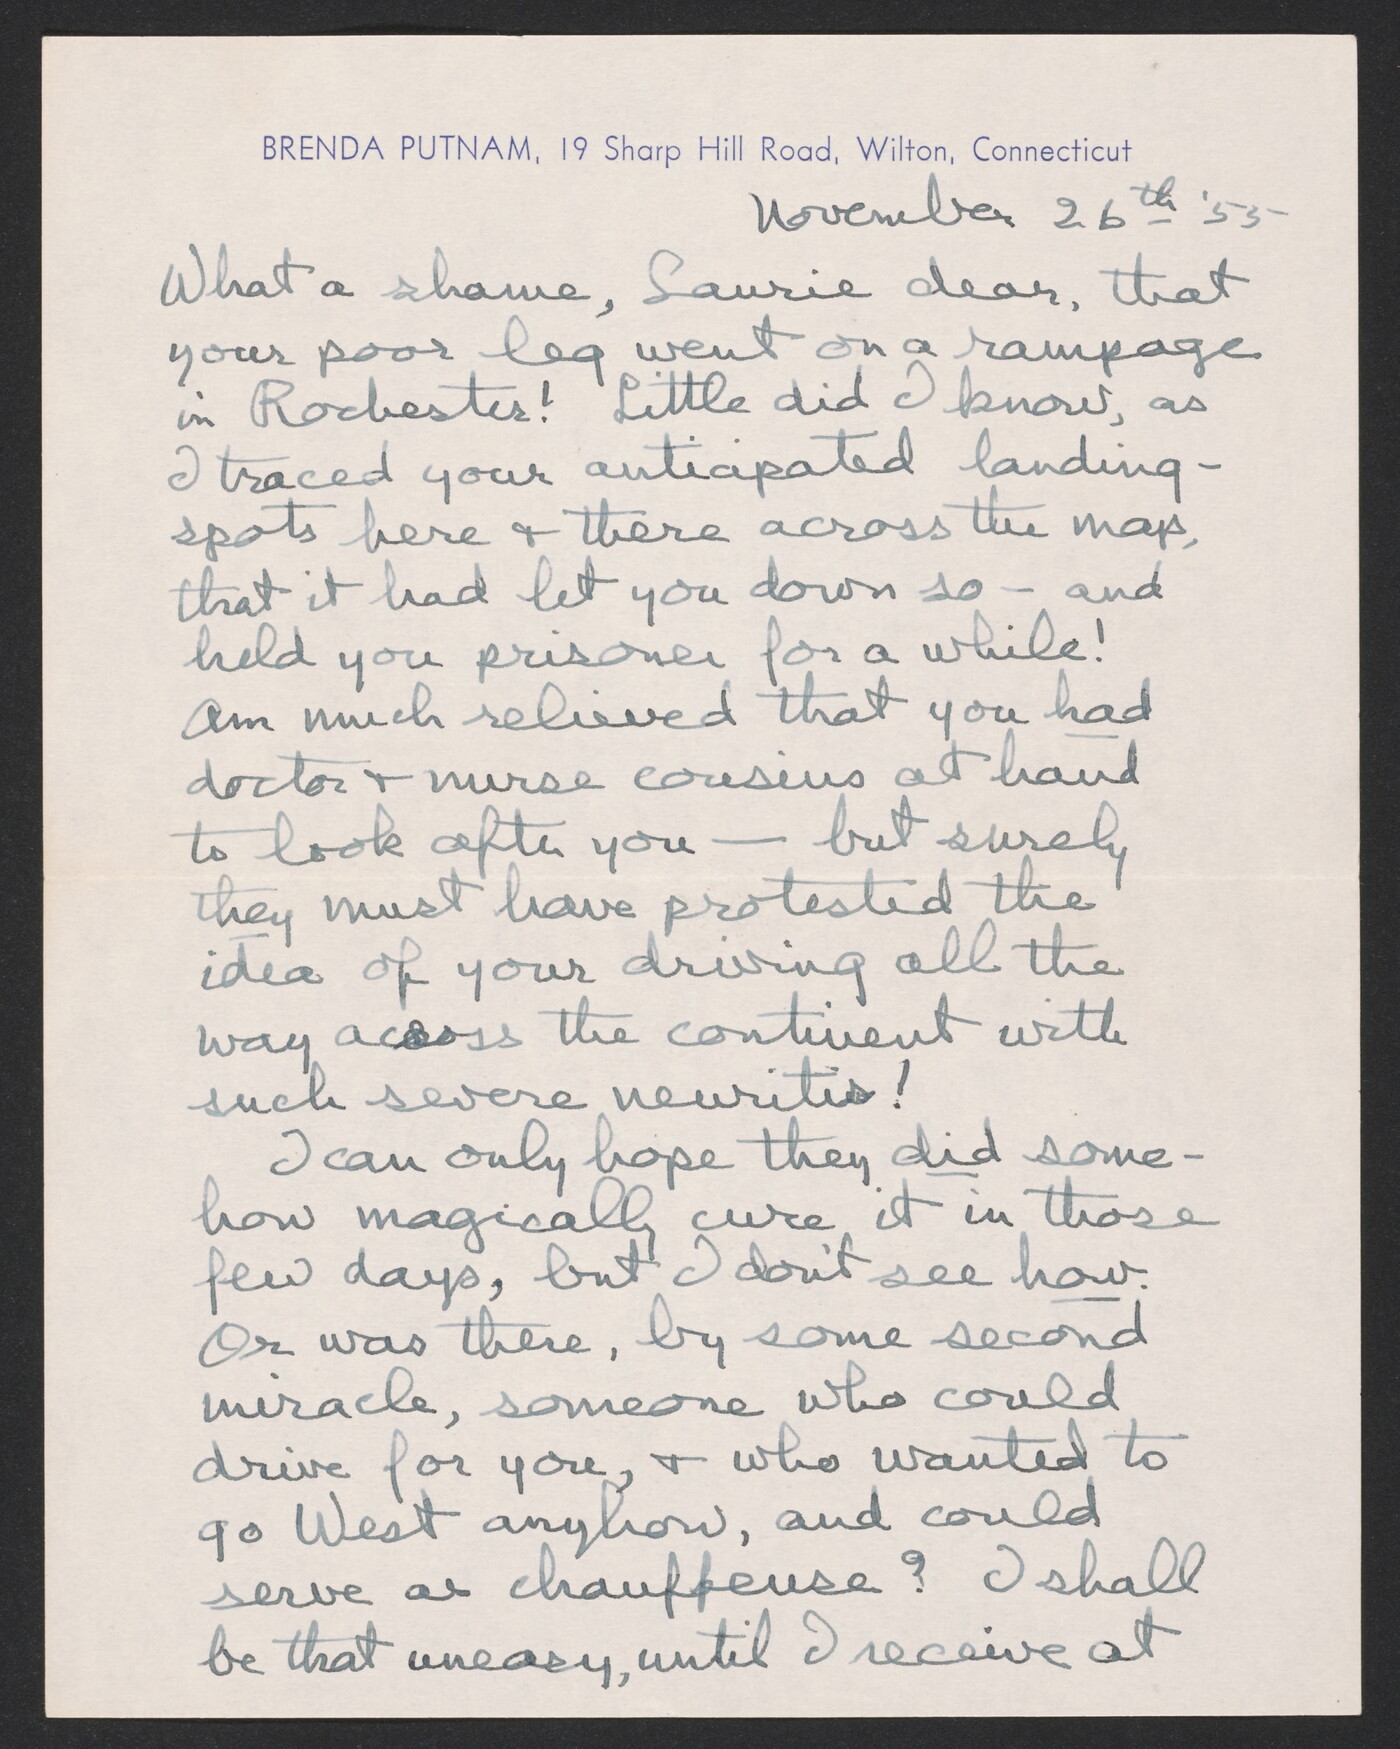 BRENDA PUTNAM, 19 Sharp Hill Road, Wilton, Connecticut
November 26th '55
What a shame, Laurie dear, that
your poor leg went on a rampage
in Rochester! Little did I know, as
I traced your anticipated landing-
spots here & there across the map,
that it had let you down so – and
held you prisoner for a while!
Am much relieved that you had
doctor & nurse cousins at hand
to look after you — but surely
they must have protested the
idea of your driving all the
way across the continent with
such severe neuritis!
I can only hope they did some-
how magically cure it in those
few days, but I don't see how.
Or was there, by some second
miracle, someone who could
drive for you, & who wanted to
go West anyhow, and could
serve as chauffeuse? I shall
be that uneasy, until I receive at